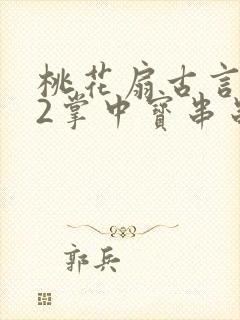 桃花扇古言
2掌中寳串
郭兵